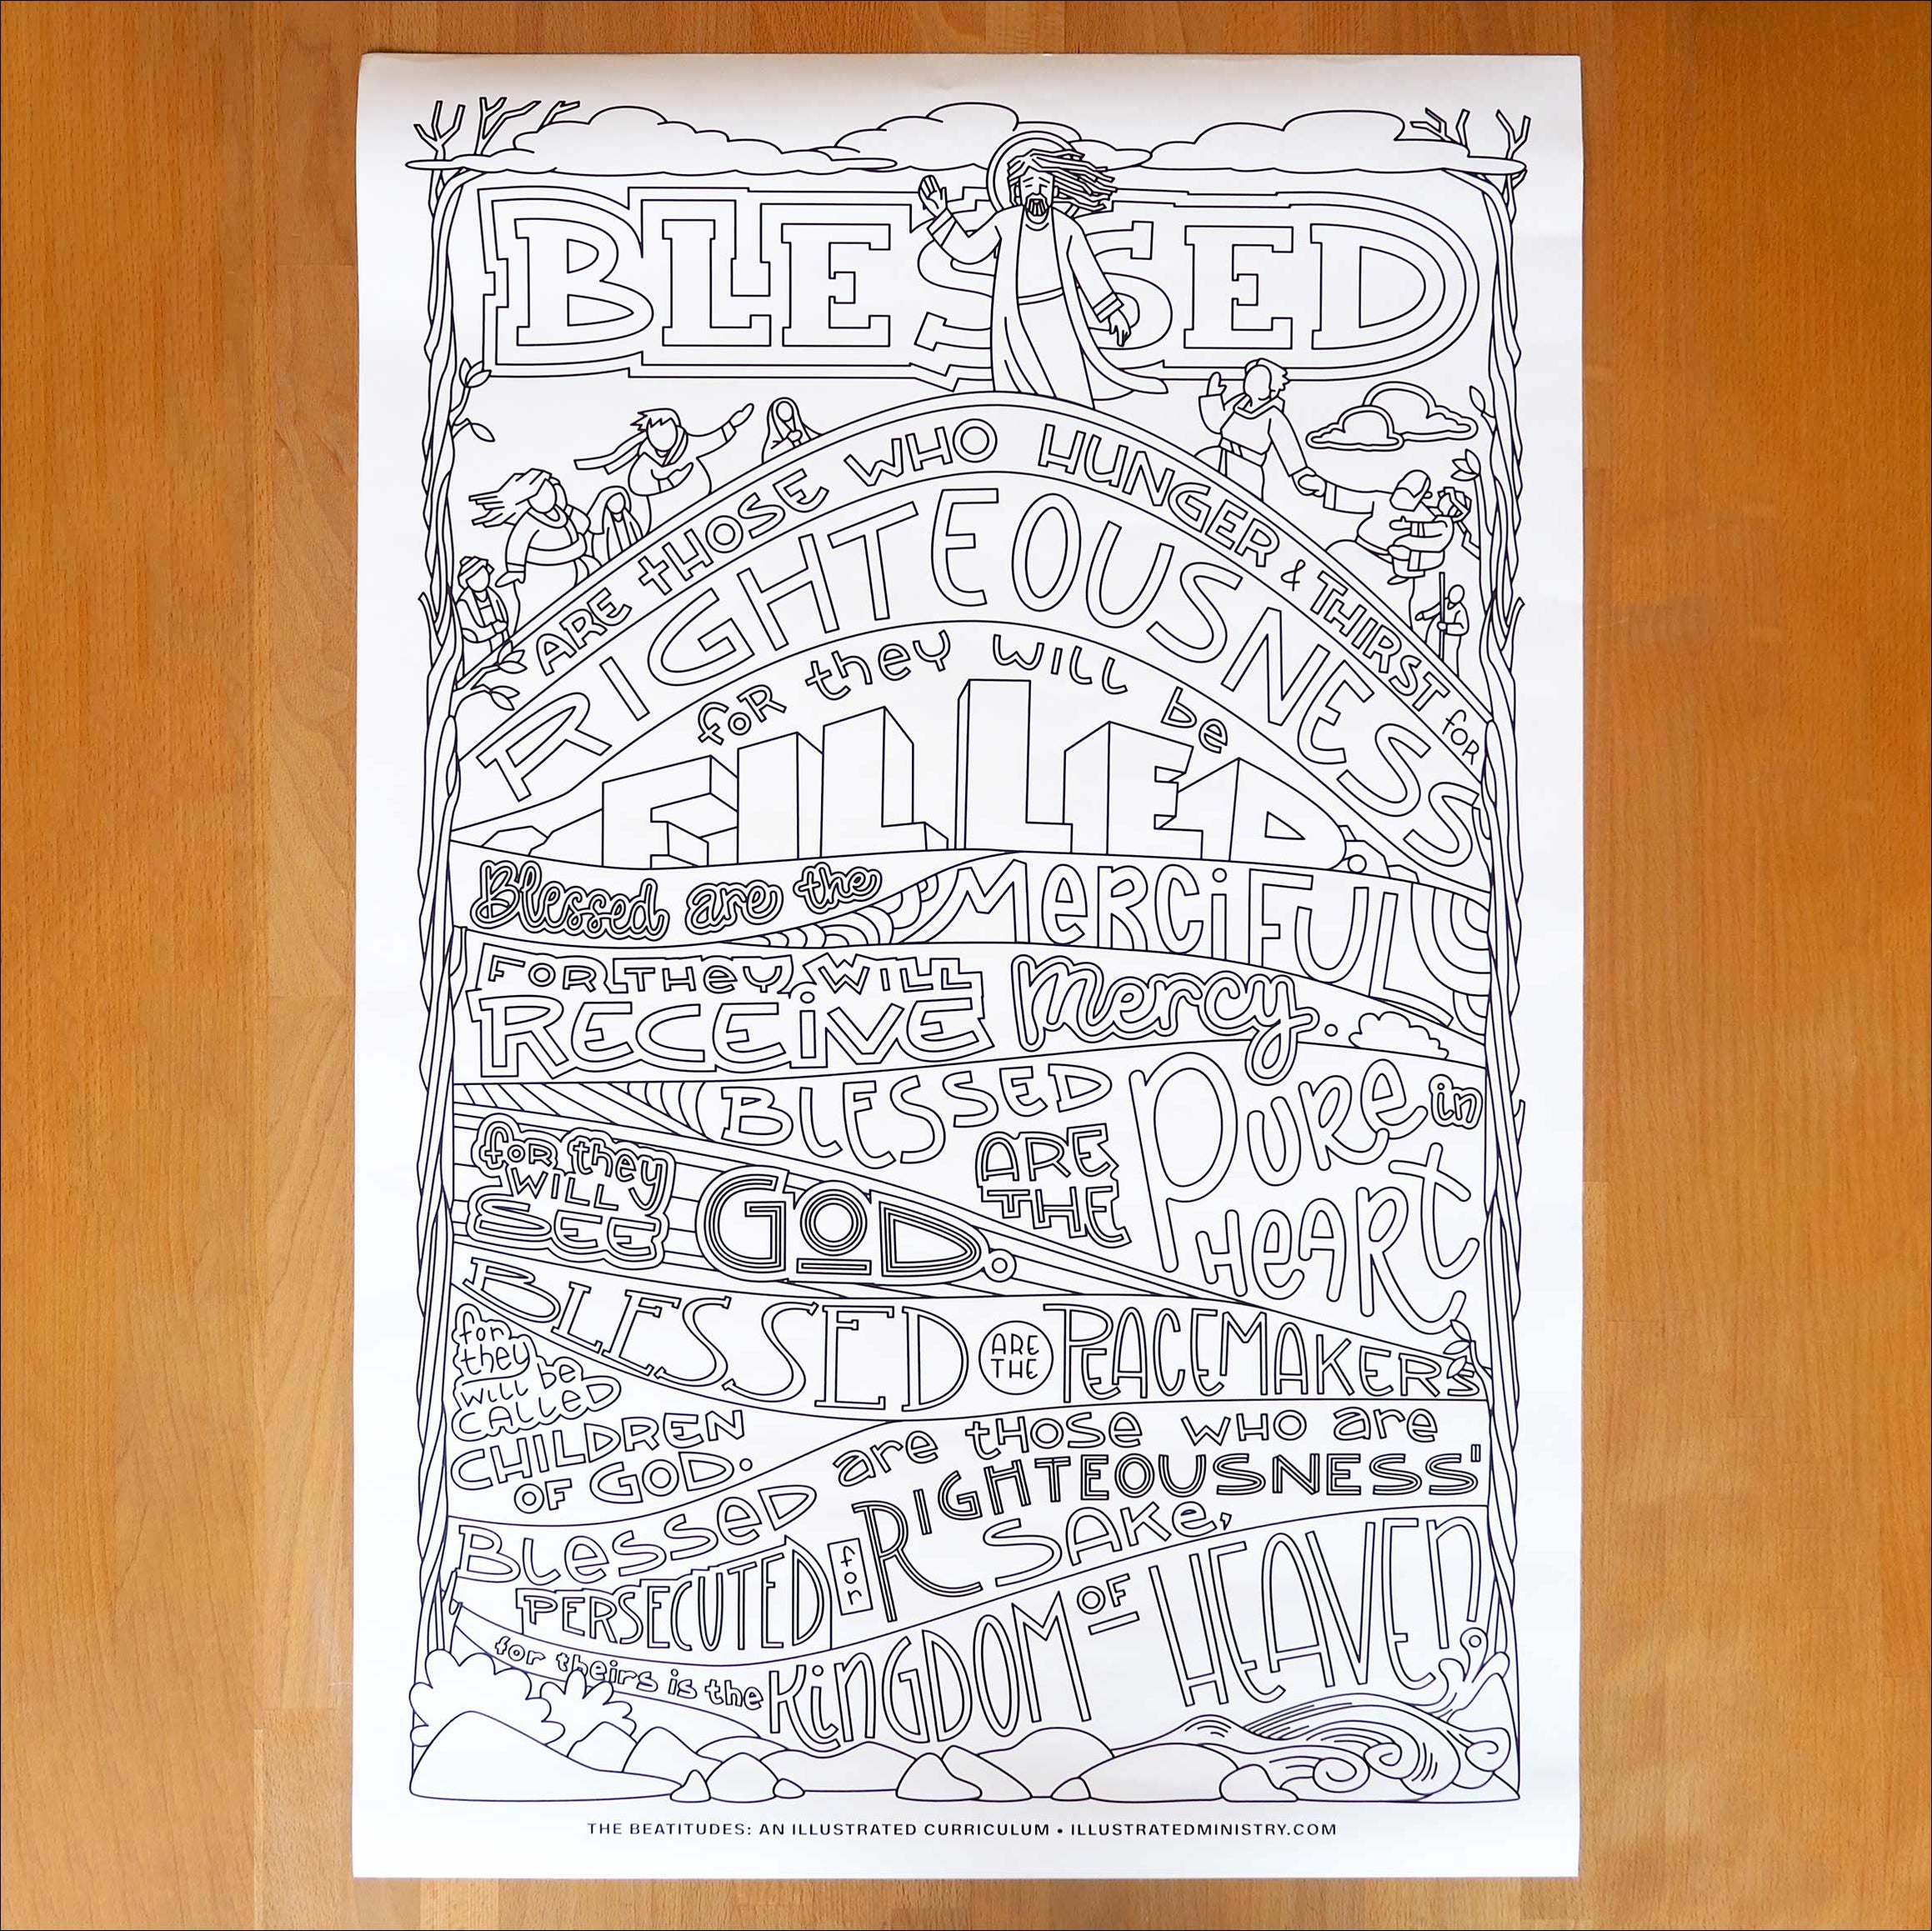 BLESSED
ARE tHOSE WHO HUNGER & THIRST foR
RIGHTEOUSNESS
foR they WiLL be
FILLED.
Blessed are the MeRCiFUL
FOR THEY WILL
RECEiVE Mercy.
BLESSED
ARE
THE
PuRe in
HeARt
foR they
WILL
SEE
GOD.
BLESSED ARE THE PEACEMAKERS
for
they
will be
CALLED
CHILDREN
OF GOD.
BLesseD are tHOSE WHO are
PERSECUTED for RIGHTEOUSNESS'
SAKe,
for theirs is the KiNGDOM OF HEAVEN.
THE BEATITUDES: AN ILLUSTRATED CURRICULUM • ILLUSTRATEDMINISTRY.COM